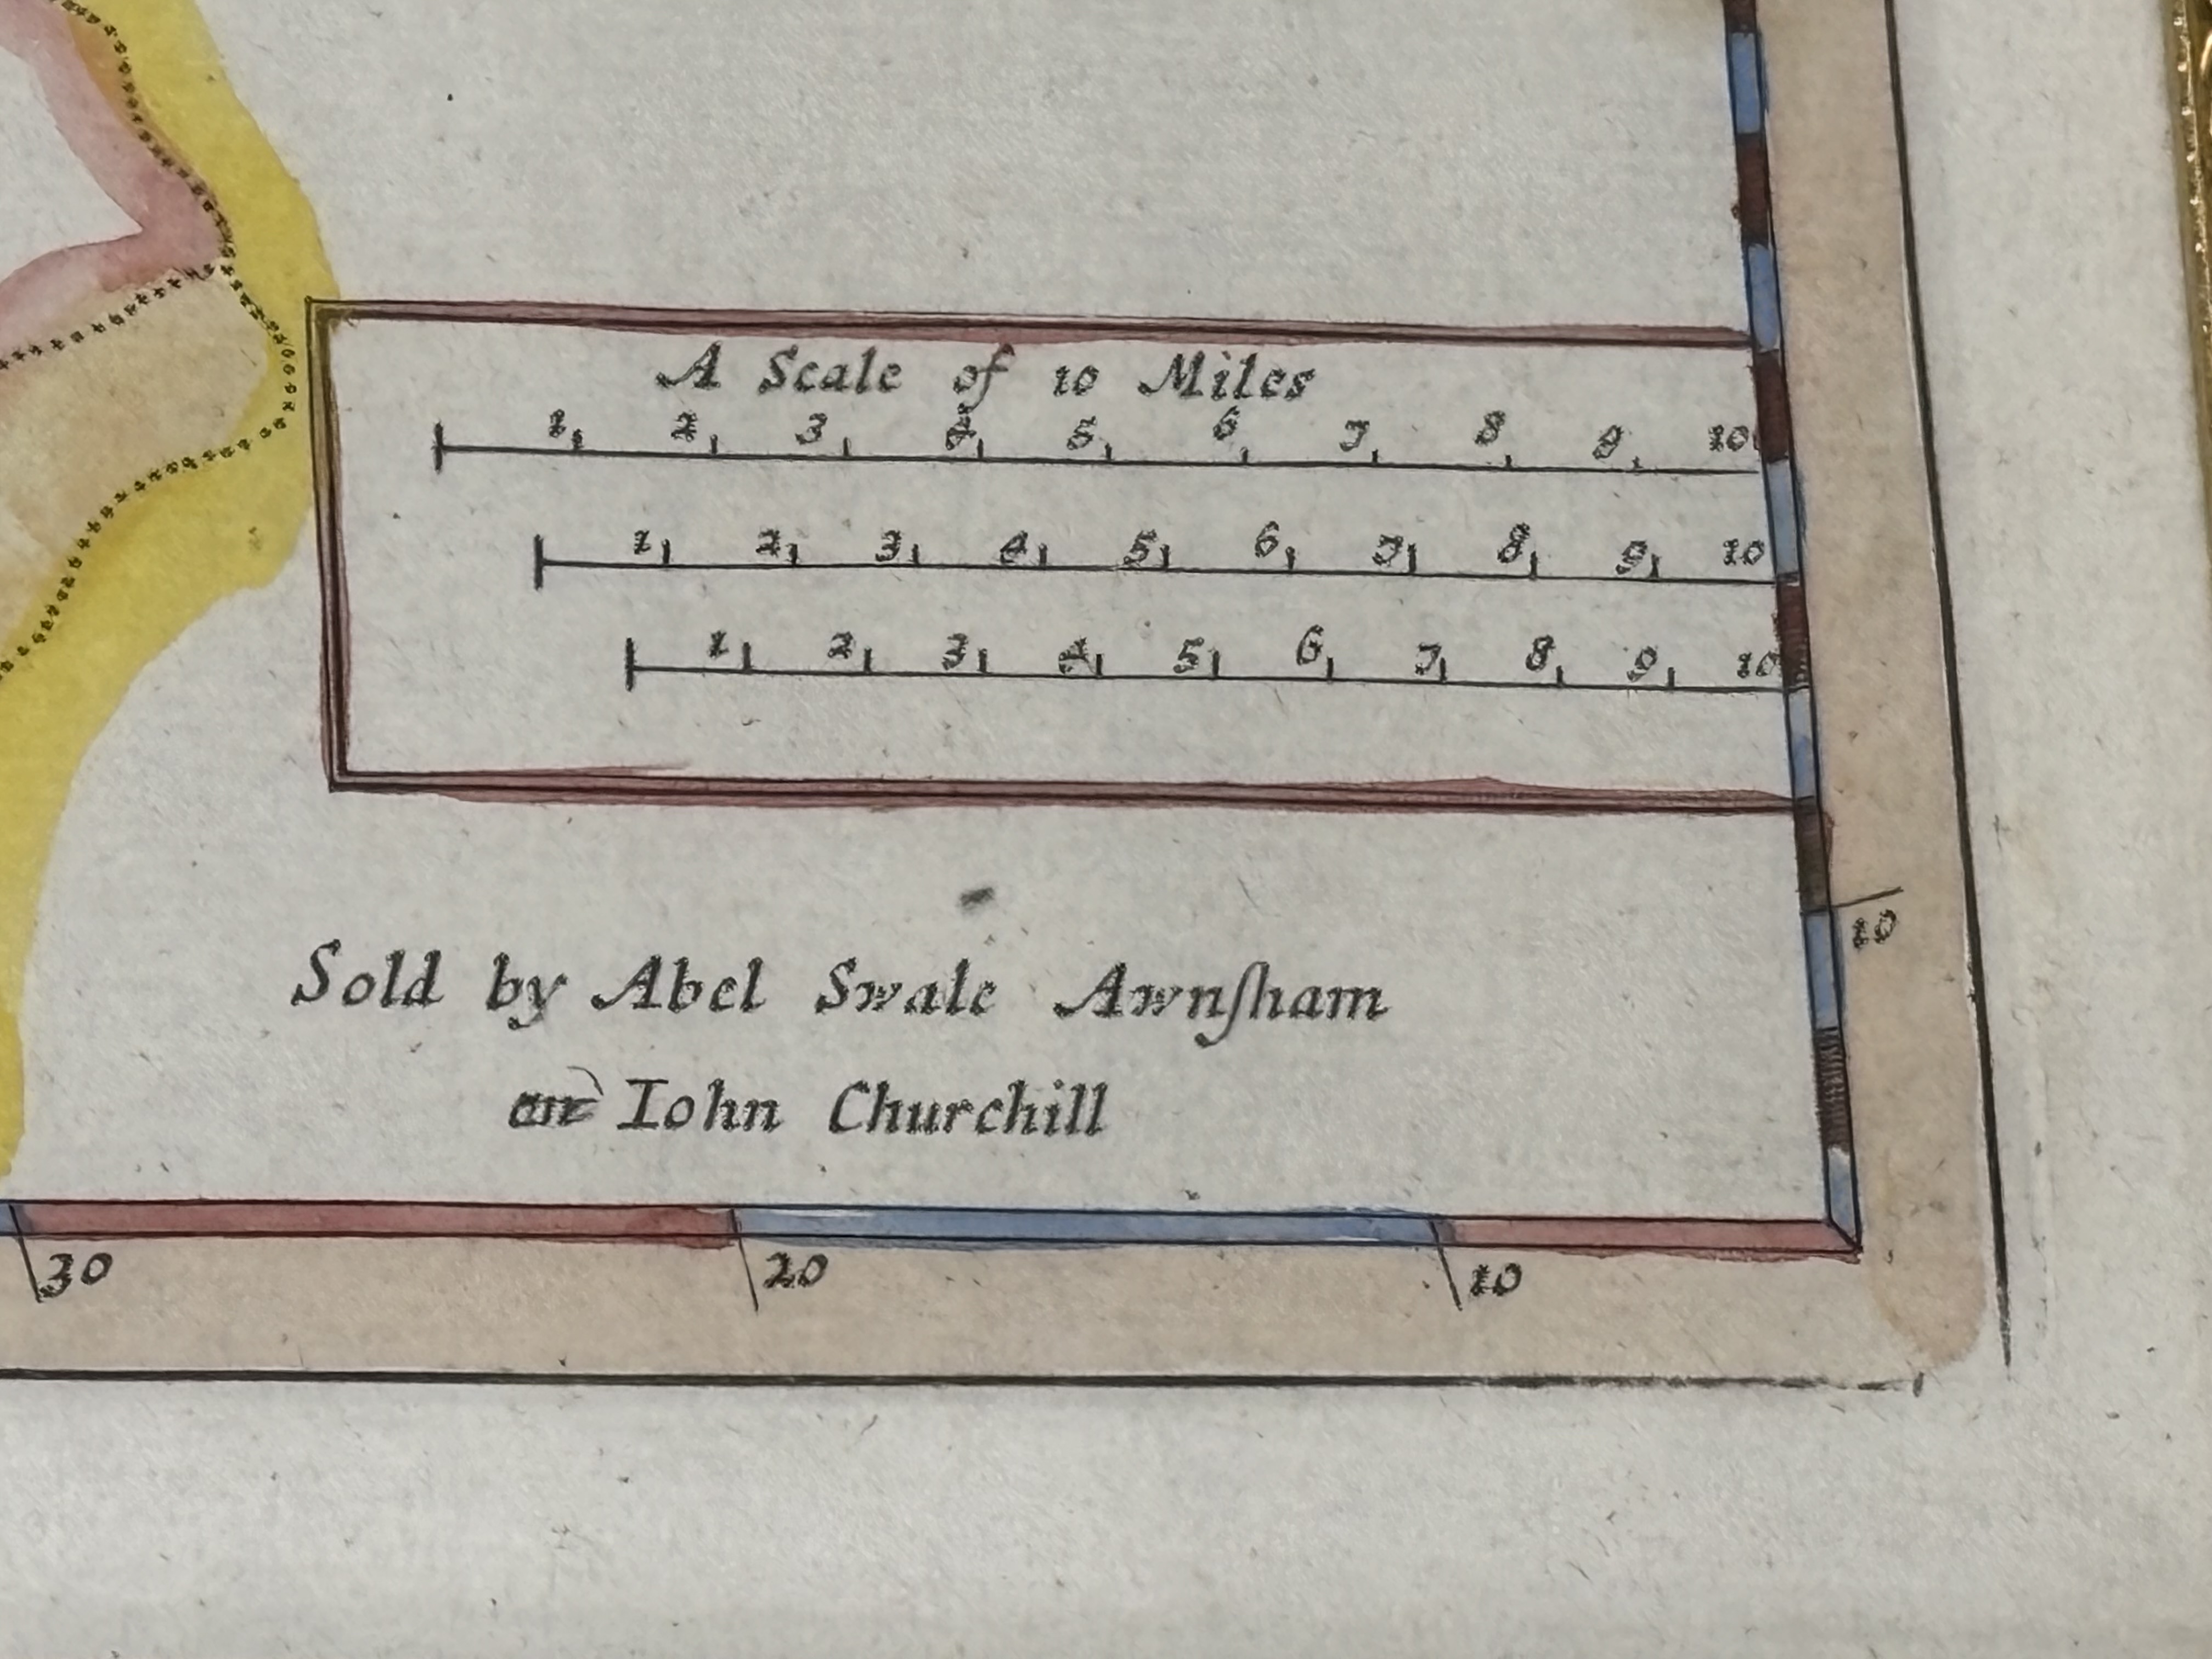 A Scale of 10 Miles
1 2 3 4 5 6 7 8 9 10
1 2 3 4 5 6 7 8 9 10
1 2 3 4 5 6 7 8 9 10
10
Sold by Abel Swale Awnſham
and Iohn Churchill
30 20 10